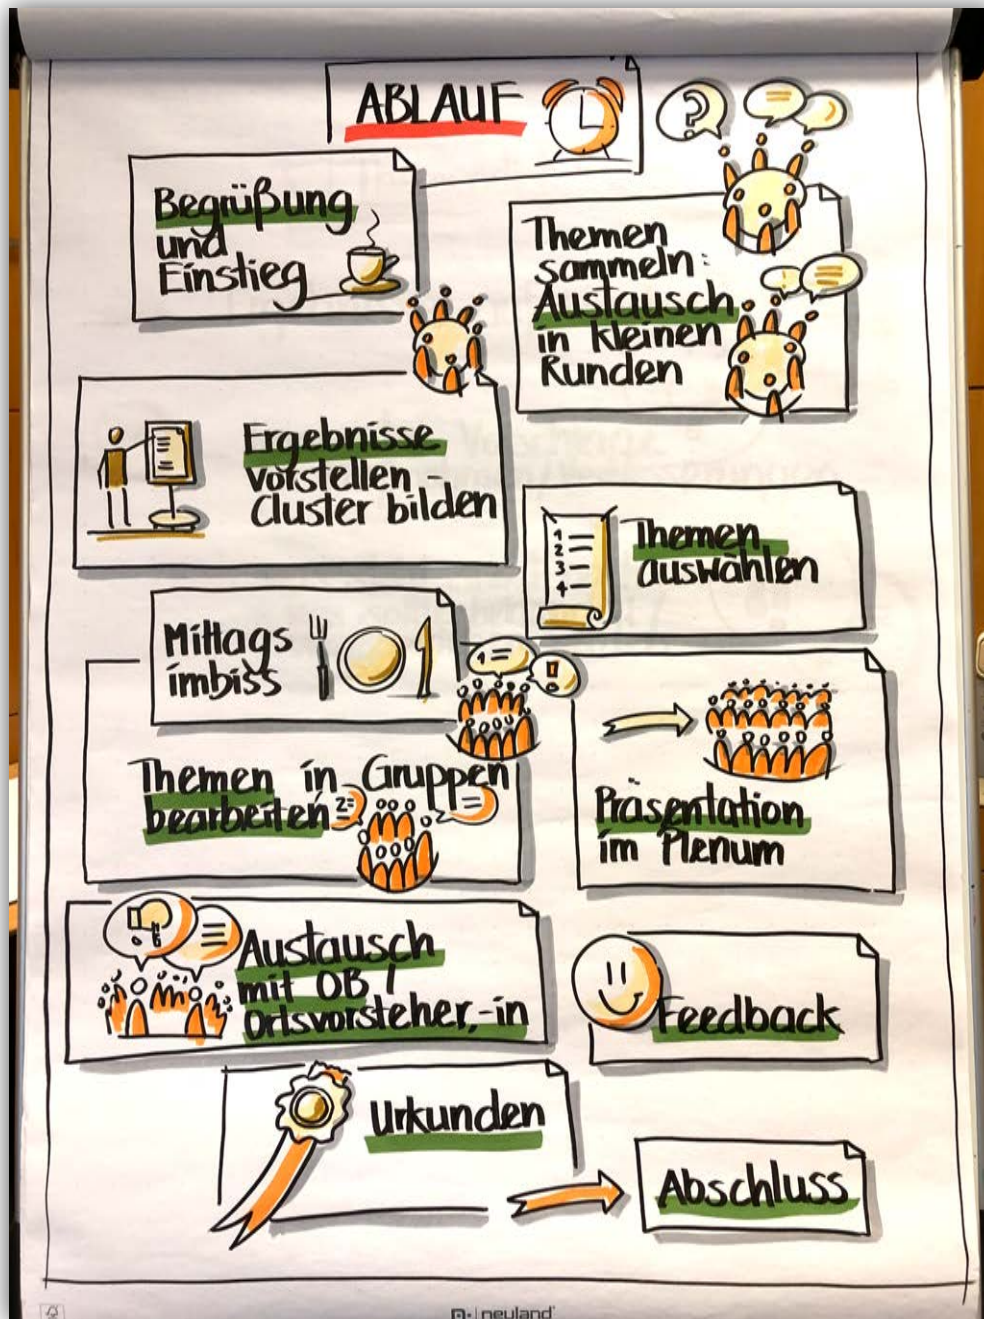 ABLAUF
?
Begrüßung
und
Einstieg
Themen
sammeln:
Austausch
in kleinen
Runden
Ergebnisse
vorstellen -
Cluster bilden
1
2
3
4
Themen
auswählen
Mittags
imbiss
1
!
Themen in Gruppen
bearbeiten
2
Präsentation
im Plenum
Austausch
mit OB /
Ortsvorsteher,-in
Feedback
Urkunden
Abschluss
neuland